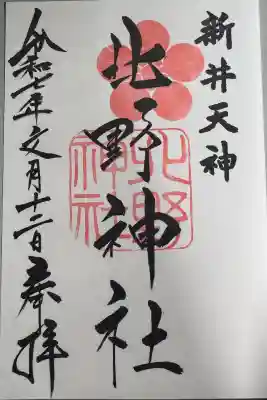 新井天神
北野神社
北野
神社
令和七年文月十二日奉拝